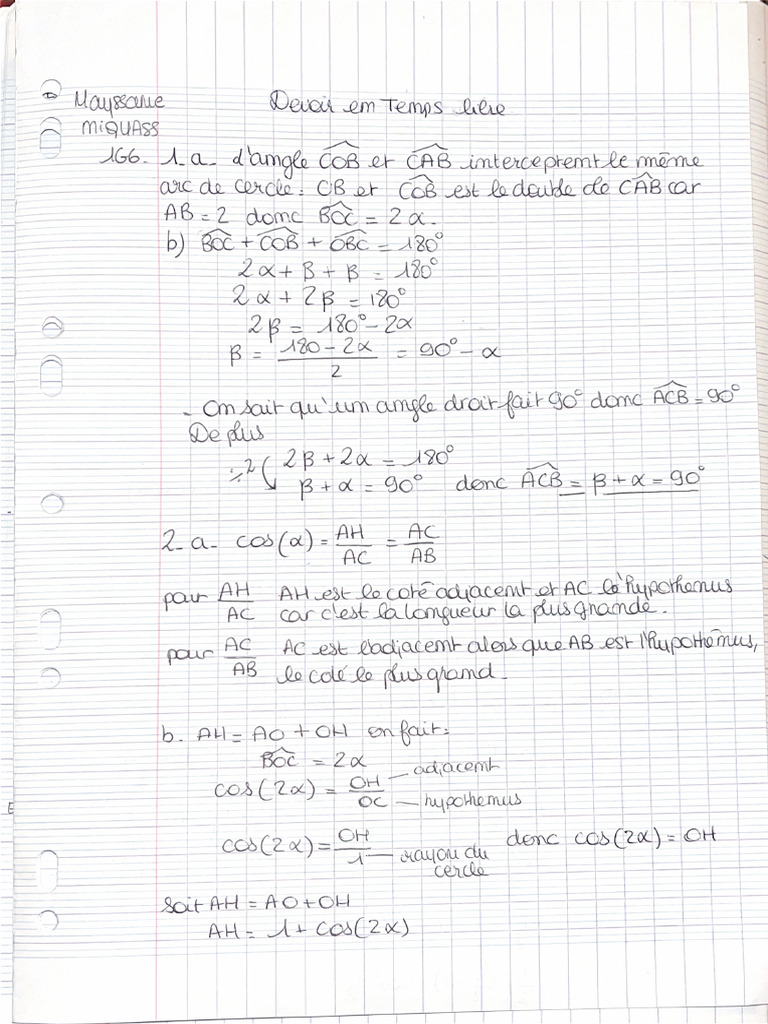 Mayssane Devoir en Temps libre
MIQUASS
166. 1.a. d'angle COB et CAB interceptent le même
arc de cercle : CB et COB est le double de CAB car
AB = 2 donc BOC = 2α.
b) BOC + COB + OBC = 180°
2α + β + β = 180°
2α + 2β = 180°
2β = 180° - 2α
β = (180 - 2α)/2 = 90° - α
- On sait qu'un angle droit fait 90° donc ACB = 90°
De plus
÷2 ( 2β + 2α = 180°
β + α = 90° donc ACB = β + α = 90°
2. a. cos(α) = AH/AC = AC/AB
pour AH/AC AH est le coté adjacent et AC l'hypothenus
car c'est la longueur la plus grande.
pour AC/AB AC est l'adjacent alors que AB est l'hypothénus,
le coté le plus grand.
b. AH = AO + OH on fait :
BOC = 2α
cos(2α) = OH/OC — adjacent — hypothenus
cos(2α) = OH/1 — rayon du cercle donc cos(2α) = OH
soit AH = AO + OH
AH = 1 + cos(2α)